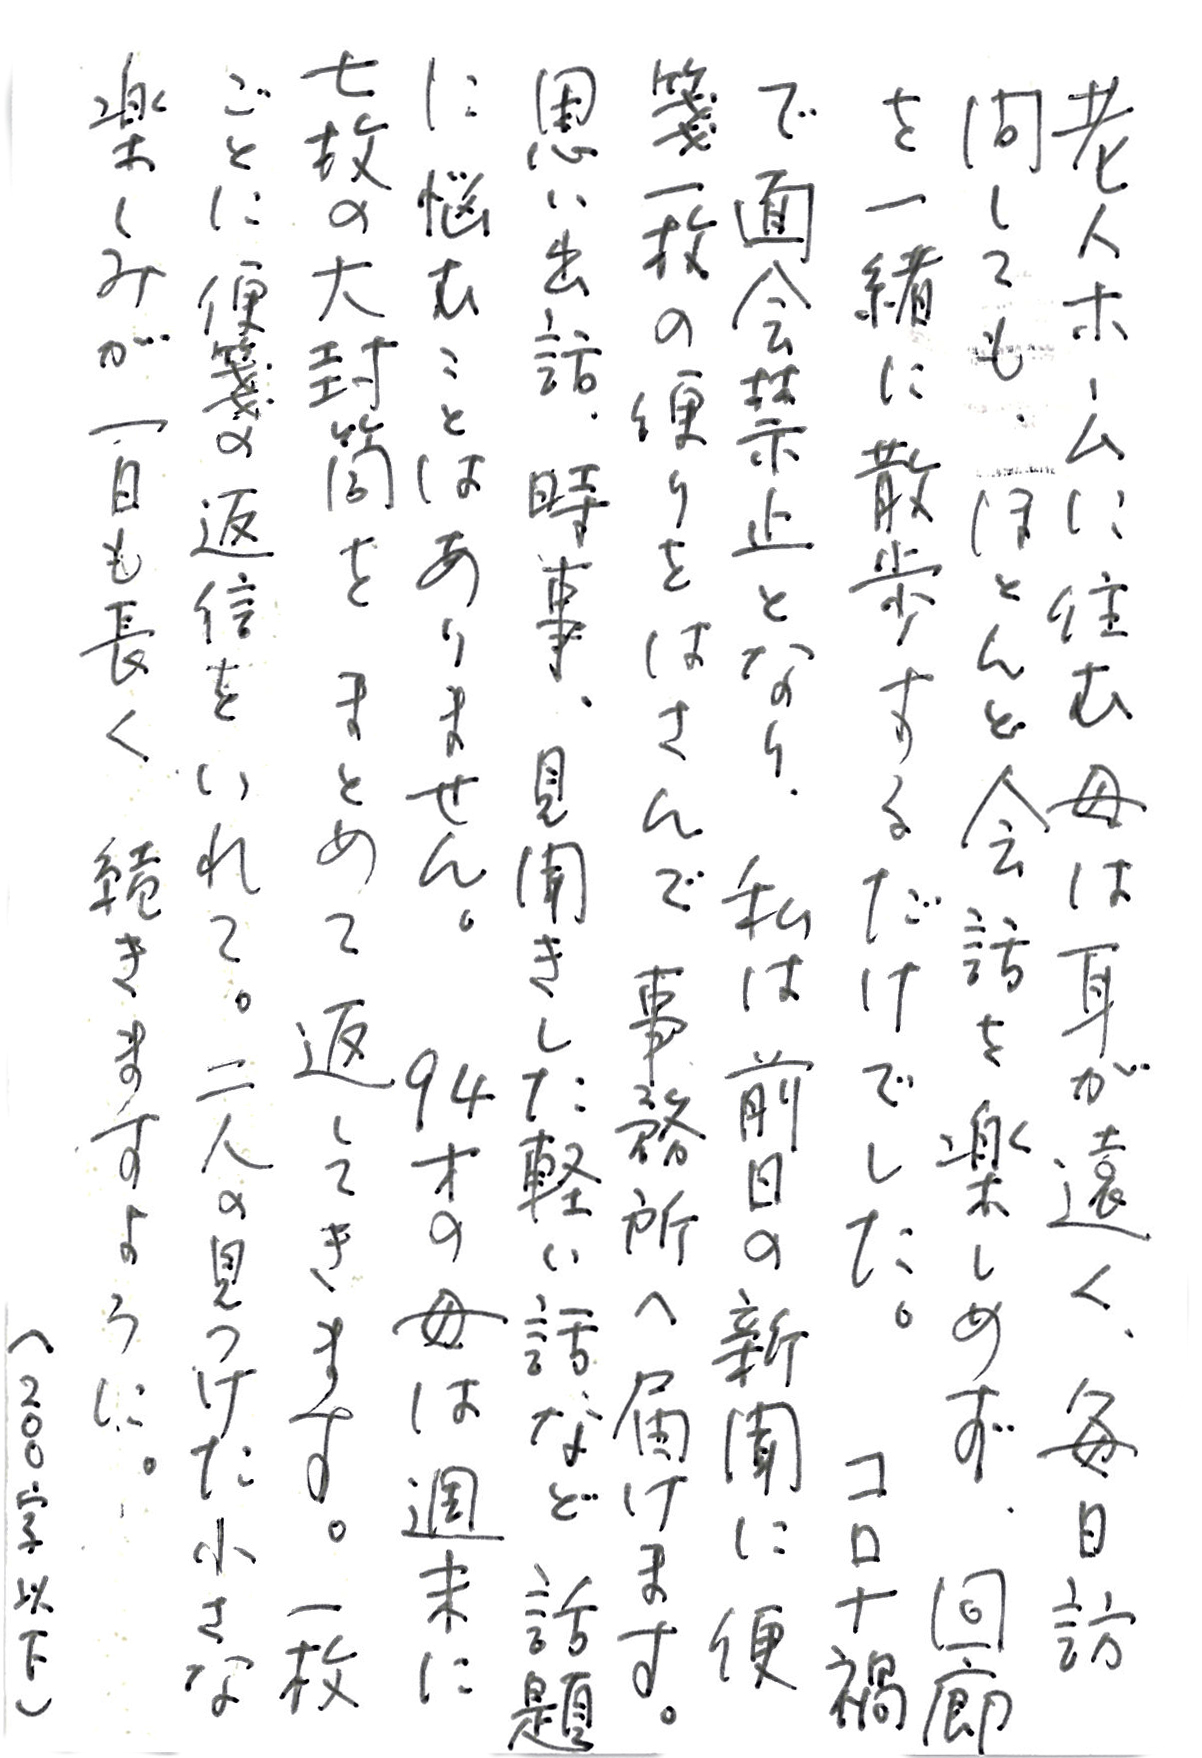 老人ホームに住む母は耳が遠く、毎日訪
問しても、ほとんど会話を楽しめず、回廊
を一緒に散歩するだけでした。 コロナ禍
で面会禁止となり、私は前日の新聞に便
箋一枚の便りをはさんで事務所へ届けます。
思い出話、時事、見聞きした軽い話など話題
に悩むことはありません。 94才の母は週末に
七枚の大封筒をまとめて返してきます。一枚
ごとに便箋の返信をいれて。二人の見つけた小さな
楽しみが一日も長く続きますように。
(200字以下)